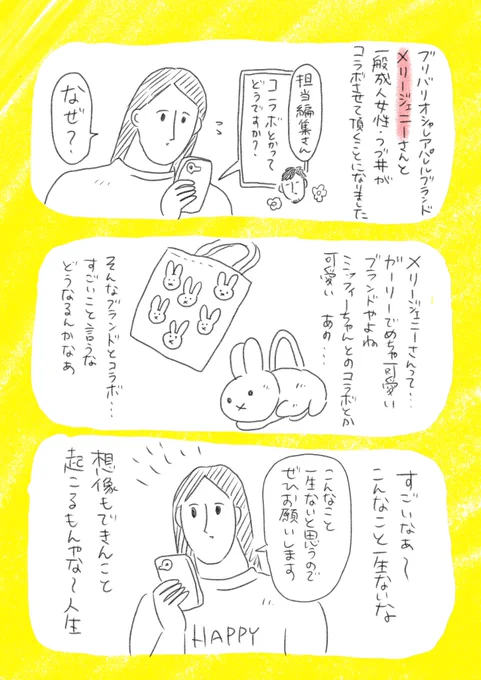 ブリバリオシャレアパレルブランド
メリージェニーさんと
一般成人女性・つづ井が
コラボさせて頂くことになりました
担当編集さん
コラボとかって
どうですか?
なぜ?
メリージェニーさんって…
ガーリーでめちゃ可愛い
ブランドやよね
ミッフィーちゃんとのコラボとか
可愛い あの…
そんなブランドとコラボ…
すごいこと言うな
どうなるんかなぁ
すごいなぁ〜
こんなこと一生ないな
こんなこと
一生ないと思うので
ぜひお願いします
HAPPY
想像もできんこと
起こるもんやな〜人生